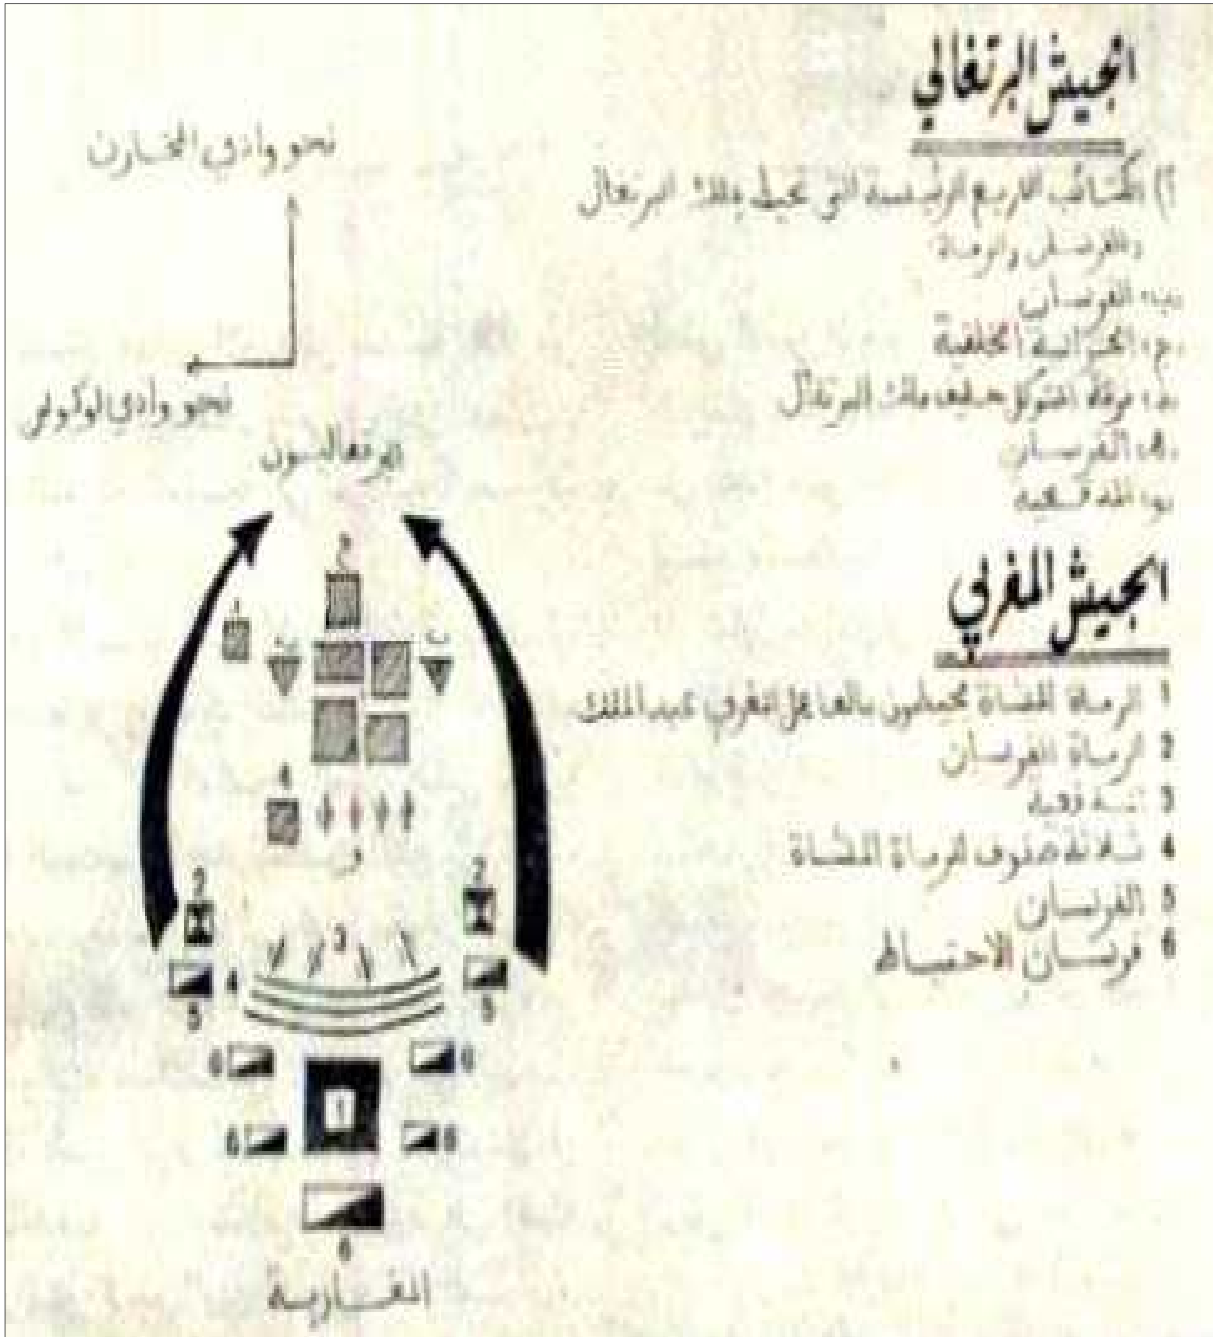 الجيش البرتغالي
أ) الكتائب الأربع الرئيسية التي تحيط بملك البرتغال
والفرسان والرماة
ب، الفرسان
ج، الحراسة الخلفية
د، فرقة المتوكل حليف ملك البرتغال
الفرسان
و، المدفعية
الجيش المغربي
1 الرماة المشاة محيطون بالعاهل المغربي عبد الملك
2 الرماة الفرسان
3
4 ثلاثة صفوف للرماة المشاة
5 الفرسان
6 فرسان الاحتياط
نحو وادي المخازن
نحو وادي لوكوس
البرتغاليون
ج
ب
و
2
2
3
4
5
5
6
6
1
6
6
6
المغاربة